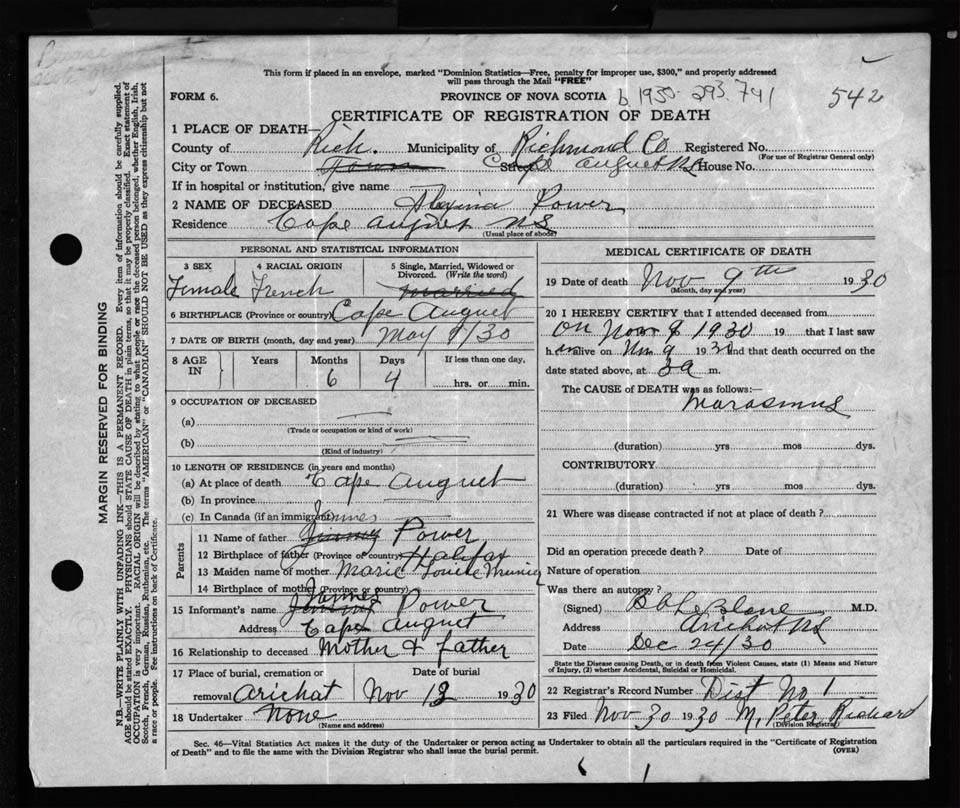 This form if placed in an envelope, marked "Dominion Statistics—Free, penalty for improper use, $300," and properly addressed
will pass through the Mail "FREE"
FORM 6.
PROVINCE OF NOVA SCOTIA
b 1930-293.741
542
CERTIFICATE OF REGISTRATION OF DEATH
1 PLACE OF DEATH—
County of Rich. Municipality of Richmond Co Registered No.
(For use of Registrar General only)
City or Town Town Street Cape Auguet NS House No.
If in hospital or institution, give name
2 NAME OF DECEASED Power
Residence Cape Auguet NS
(Usual place of abode)
PERSONAL AND STATISTICAL INFORMATION
3 SEX Female
4 RACIAL ORIGIN French
5 Single, Married, Widowed or Divorced. (Write the word) Married
6 BIRTHPLACE (Province or country) Cape Auguet
7 DATE OF BIRTH (month, day and year) May 9/30
8 AGE IN Years Months 6 Days 4 If less than one day, hrs. or min.
9 OCCUPATION OF DECEASED
(a)
(Trade or occupation or kind of work)
(b)
(Kind of industry)
10 LENGTH OF RESIDENCE (in years and months)
(a) At place of death Cape Auguet
(b) In province
(c) In Canada (if an immigrant)
Parents
11 Name of father James Power
12 Birthplace of father (Province or country) Halifax
13 Maiden name of mother Marie Louise
14 Birthplace of mother (Province or country)
15 Informant's name James Power
Address Cape Auguet
16 Relationship to deceased Mother & father
17 Place of burial, cremation or removal Arichat
Date of burial Nov 13 1930
18 Undertaker None
(Name and address)
MEDICAL CERTIFICATE OF DEATH
19 Date of death Nov 9th 1930
(Month, day and year)
20 I HEREBY CERTIFY that I attended deceased from
on Nov 9 1930 19 that I last saw
h er alive on Nov 9 1930 and that death occurred on the
date stated above, at 3 a m.
The CAUSE of DEATH was as follows:—
Marasmus
(duration) yrs mos dys.
CONTRIBUTORY
(duration) yrs mos dys.
21 Where was disease contracted if not at place of death?
Did an operation precede death? Date of
Nature of operation
Was there an autopsy?
(Signed) LeBlanc M.D.
Address Arichat NS
Date Dec 24/30
State the Disease causing Death, or in death from Violent Causes, state (1) Means and Nature
of Injury, (2) whether Accidental, Suicidal or Homicidal.
22 Registrar's Record Number Dist No 1
23 Filed Nov 30 1930 M. Peter Richard
(Division Registrar)
Sec. 46—Vital Statistics Act makes it the duty of the Undertaker or person acting as Undertaker to obtain all the particulars required in the "Certificate of Registration
of Death" and to file the same with the Division Registrar who shall issue the burial permit.
(OVER)
MARGIN RESERVED FOR BINDING
N.B.—WRITE PLAINLY WITH UNFADING INK—THIS IS A PERMANENT RECORD. Every item of information should be carefully supplied.
AGE should be stated EXACTLY. PHYSICIANS should STATE CAUSE OF DEATH in plain terms, so that it may be properly classified. Exact statement of
OCCUPATION is very important. RACIAL ORIGIN will be described by stating to what people or race the deceased person belonged, whether English, Irish,
Scotch, French, German, Russian, Ruthenian, etc. The terms "AMERICAN" or "CANADIAN" SHOULD NOT BE USED as they express citizenship but not
a race or people. See instructions on back of Certificate.